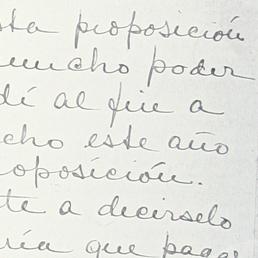 sta proposición
mucho poder
dí al fin a
cho este año
oposición.
te a decirselo
ría que pagar